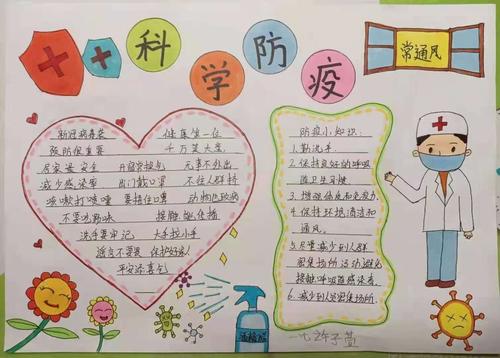 科学防疫
常通风
新冠病毒袭 健康第一位
预防很重要 千万莫大意
居家是安全 开窗常换气 无事不外出
减少感染率 出门戴口罩 不往人群挤
咳嗽打喷嚏 要捂住口鼻 动物已致病
不要吃野味 接触
洗手要牢记 大手拉小手
谣言不要莫 保护好家人
平安添喜气
防疫小知识：
1.勤洗手
2.保持良好的呼吸
道卫生习惯
3.增强体质和免疫力
4.保持环境清洁和
通风。
5.尽量减少到人群
密集场所活动避免
接触呼吸道感染者。
6.减少到人密集场所。